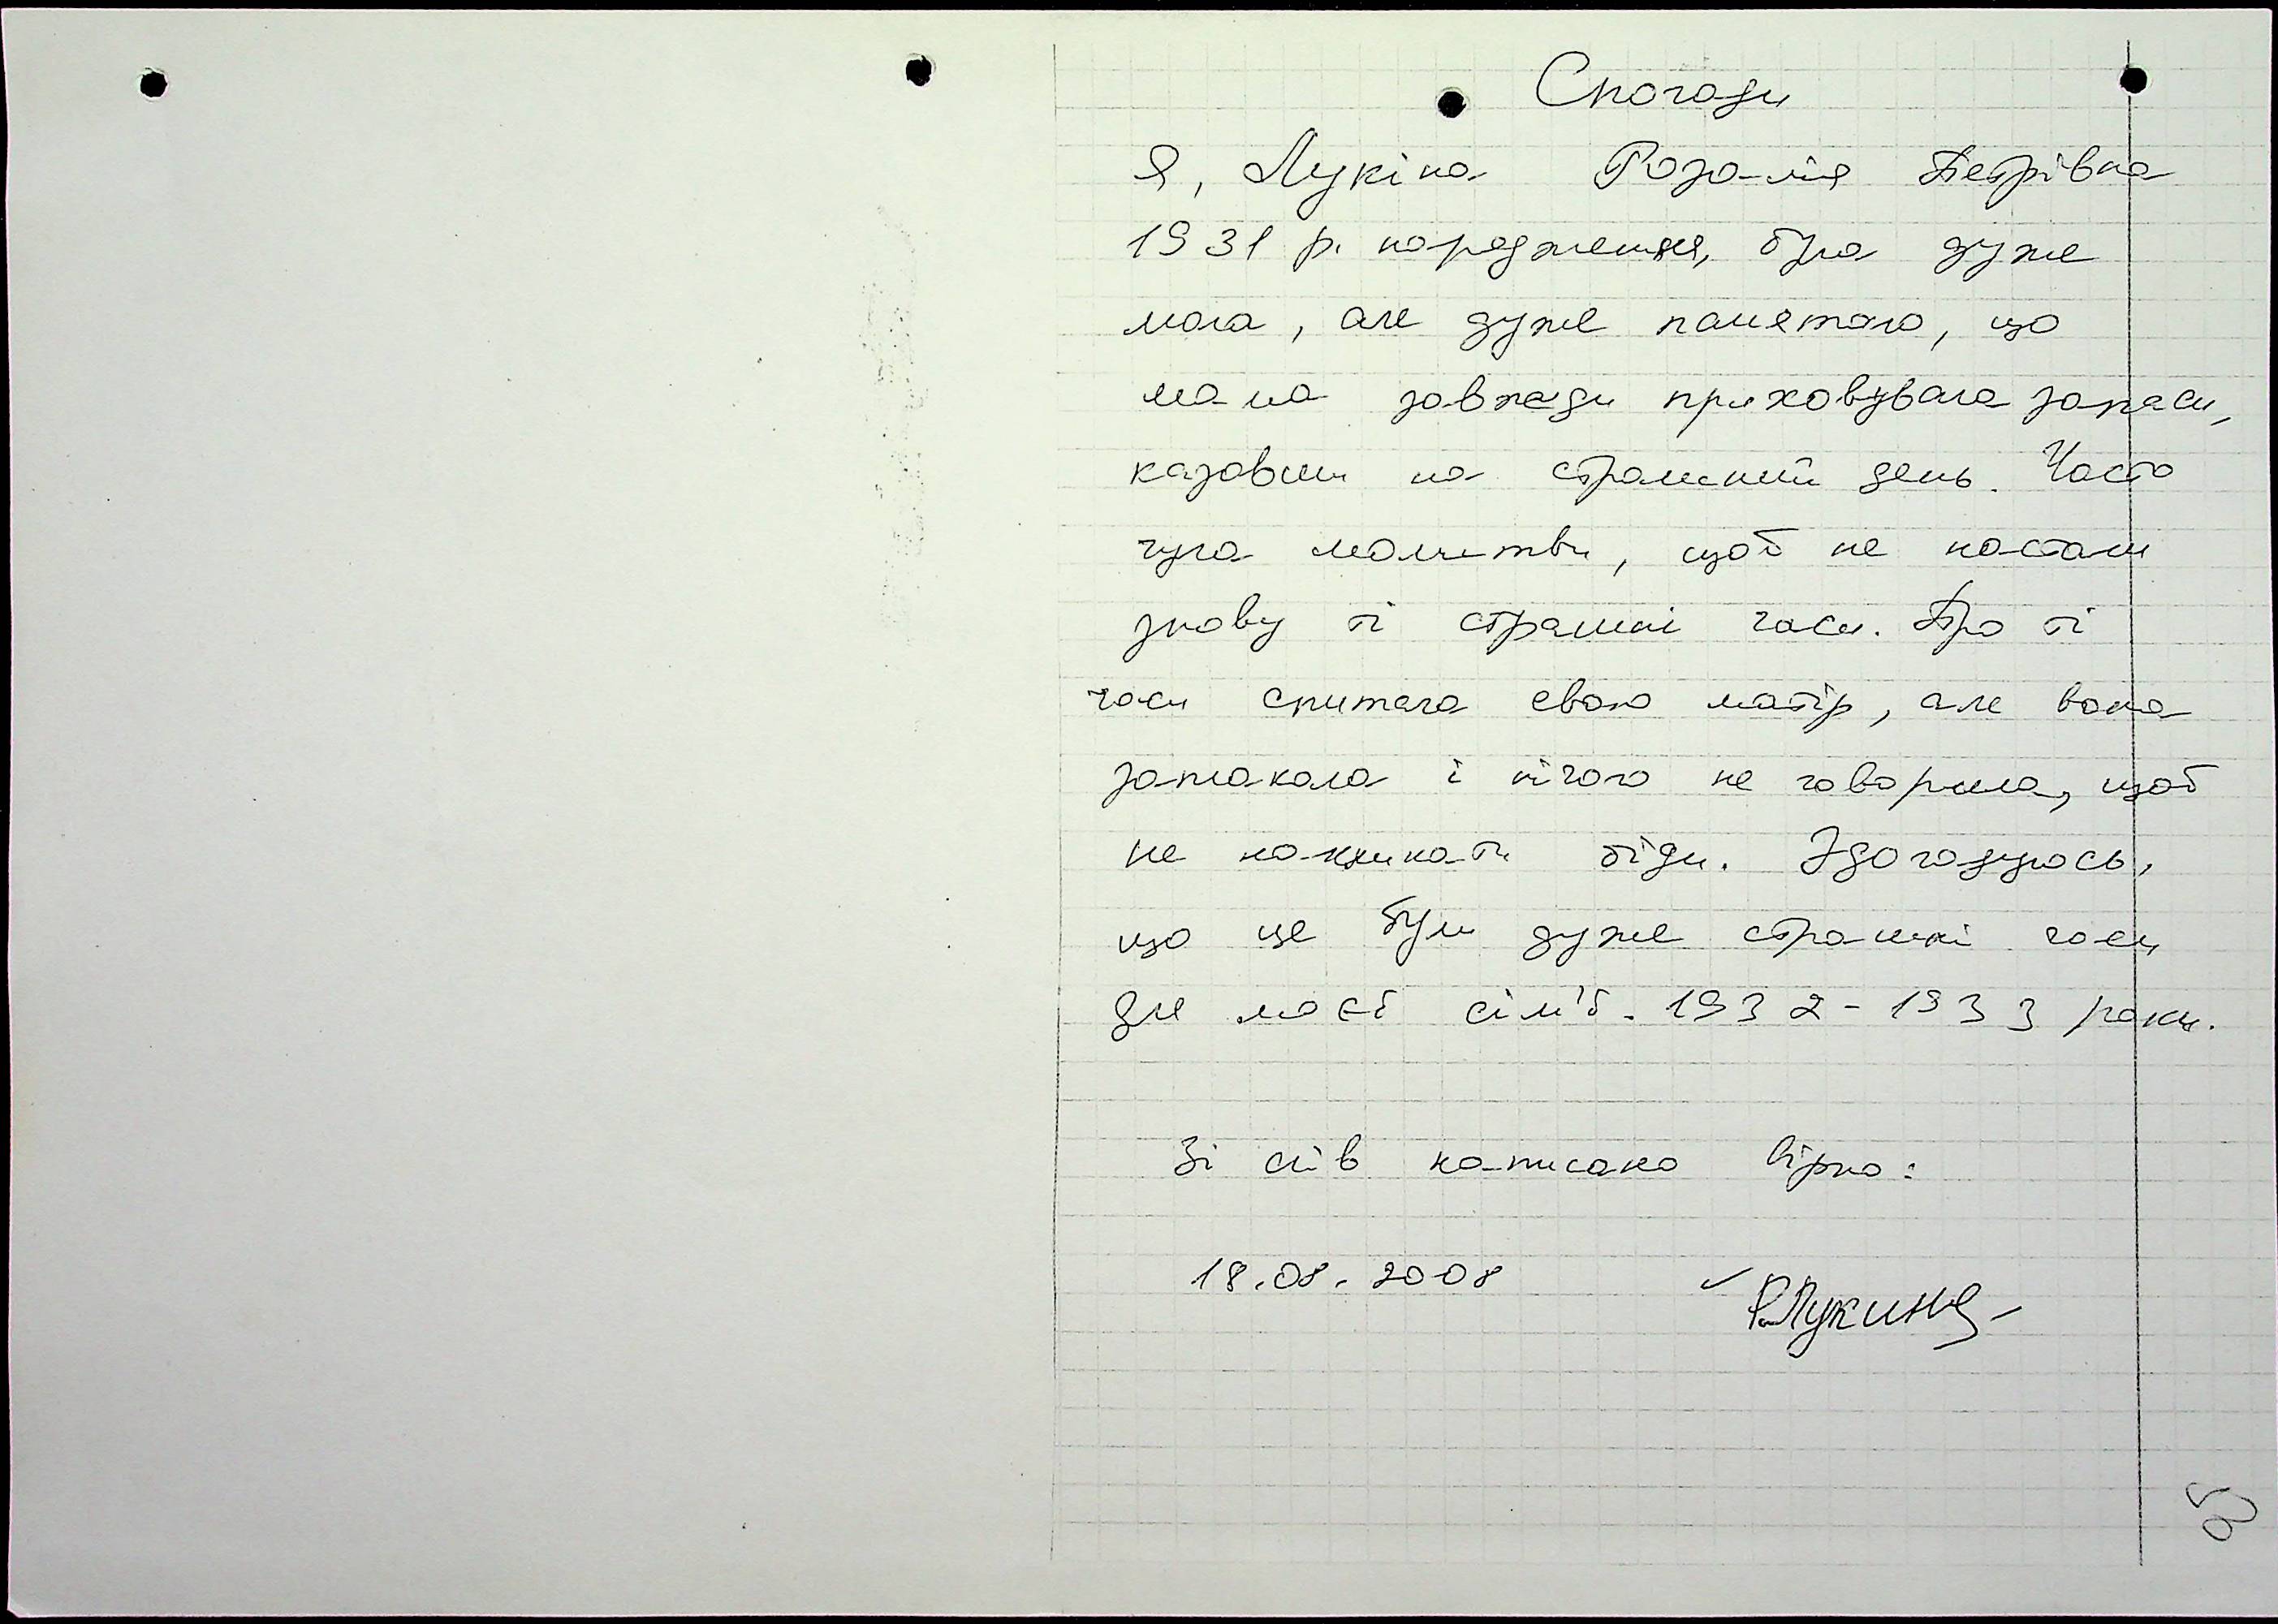 Спогади
Я, Лукіна Розалія Петрівна
1931 р. народження, була дуже
мала, але дуже памятаю, що
мама завжди приховувала запаси,
казавши на страшний день. Часто
чула молитви, щоб не настали
знову ті страшні часи. Про ті
часи спитала свою матір, але вона
заплакала і нічого не говорила, щоб
не накликати біди. Здогадуюсь,
що це були дуже страшні часи
для моєї сім'ї. 1932-1933 роки.
Зі слів написано вірно:
18.08.2008
Р.Лукина